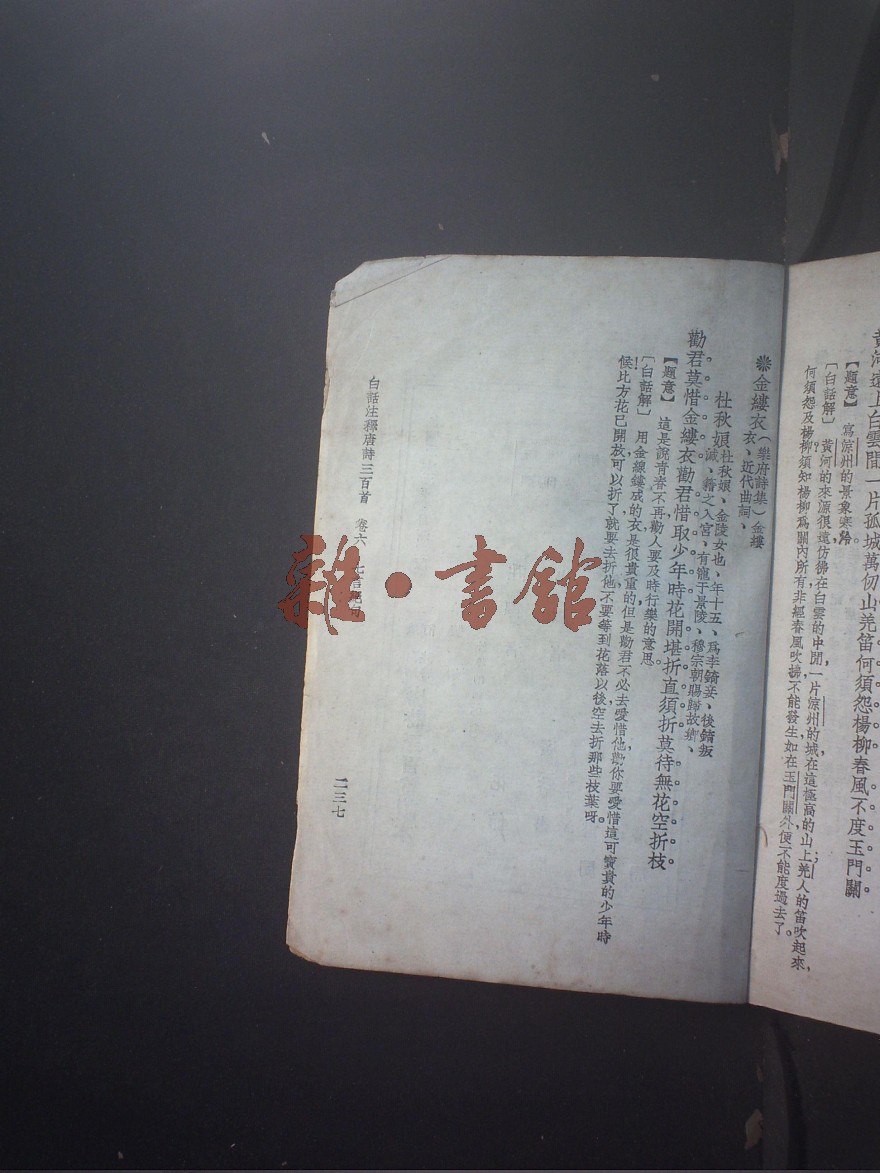 黃河遠上白雲間一片孤城萬仞山羌笛何須怨楊柳春風不度玉門關。
【題意】 寫涼州的景象寒
〔白話解〕 黃河的來源很遠仿彿在白雲的中間，一片涼州的城在這極高的山上；羌人的笛吹起來，
何須怨及楊柳須知楊柳爲關內所有非經春風吹拂不能發生如在玉門關外便不能度過去了。
❋金縷衣（樂府詩集）金縷
衣、近代曲詞、
杜秋娘杜秋娘、金陵女也、年十五、爲李錡妾、後錡叛
滅、籍之入宮、有寵于景陵、穆宗朝賜歸故鄉、
勸君莫惜金縷衣勸君惜取少年時花開堪折直須折莫待無花空折枝。
【題意】 這是說青春不再勸人要及時行樂的意思。
〔白話解〕 用金線縷成的衣是很貴重的但是勸君不必去愛惜他勸你要愛惜這可寶貴的少年時
候！比方花已開放可以折了就要去折他不要等到花落以後空去折那些枝葉呀。
白話注釋唐詩三百首 卷六 七言絕句
二三七
雜·書館